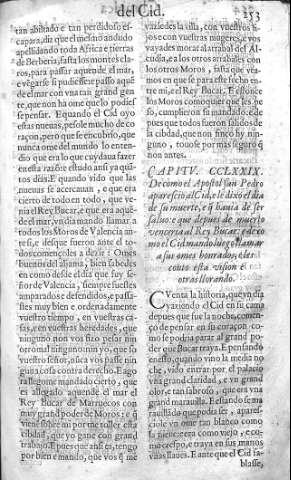 del Cid.
253
tan abiltado e tan perdidoso es-
capara, dixo que el mesmo andudo
apellidando toda Africa e tierras
de Berberia, fasta los montes cla-
ros, para passar aquende el mar,
e vengarse si pudiesse: e passo aquē
de el mar con vna tan grand gen-
te, que non ha ome que lo podies-
se pensar. E quando el Cid oyo
estas nueuas, pesole mucho de co-
raçon, pero que se encubrio, que
nunca ome del mundo lo enten-
dio que era lo que cuydaua fazer
en esta razon: e estudo ansi ya quā-
tos dias. E quando vido que las
nueuas se acercauan, e que era
cierto de todo en todo, que ve-
nia el Rey Bucar, e que era aquē-
de el mar, vn dia mando llamar a
todos los Moros de Valencia an-
te si, e desque fueron ante el to-
dos començoles a dezir: Omes
buenos del aljama, bien sabedes
en como desde el dia que fuy se-
ñor de Valencia, siempre fuestes
amparados e defendidos, e passa-
stes muy bien e ordenadamente
vuestro tiempo, en vuestras ca-
sas, e en vuestras heredades, que
ninguno non vos fizo pesar nin
otro mal ninguno nin yo, que so
vuestro señor, a vos passe nin-
guna cosa contra derecho. E ago
ra llegome mandado cierto, que
es allegado aquende el mar el
Rey Bucar de Marruecos con
muy grand poder de Moros: e q̃
viene sobre mi por me toller esta
cibdad, que yo gane con grand
trabajo. E pues que ansi es, tengo
por bien e mando, que vos q̃ me
vazi edes la villa, con vuestros fi-
jos e con vuestras mugeres, e vos
vayades morar al arrabal del Al-
cudia, e a los otros arrabales con
los otros Moros, fasta que vea-
mos en que se para este fecho en-
tre mi, e el Rey Bucar. E estonce
los Moros como quier que les pe-
so, cumplieron su mandado: e des-
pues que todos fueron salidos de
la cibdad, que non finco hy nin-
guno, touose por mas seguro q̃
non antes.
CAPITV. CCLXXIX.
De como el Apostol san Pedro
aparescio al Cid, e le dixo el dia
de su muerte, e q̃ hauia de ser
saluo: e que despues de muerto
venceria al Rey Bucar, e de co-
mo el Cid mando luego llamar
a sus omes honrados, e les
conto esta vision e
otras llorando.
CVenta la historia, que vn dia
yaziendo el Cid en su cama
despues que fue la noche, comen-
ço de pensar en su coraçon, co-
mo se podria parar al grand po-
der que Bucar traya. E pensando
en esto, quando vino la media no
che, vido entrar por el palacio
vna grand claridad, e vn grand
olor, e tan sabroso, que era vna
grand marauilla. E estando se ma
rauillado que podia ser, apares-
ciole vn ome tan blanco como
la nieue: e era como viejo, e cre-
mo crespo, e traya en sus manos
vnas llaues. E ante que el Cid fa-
blasse,